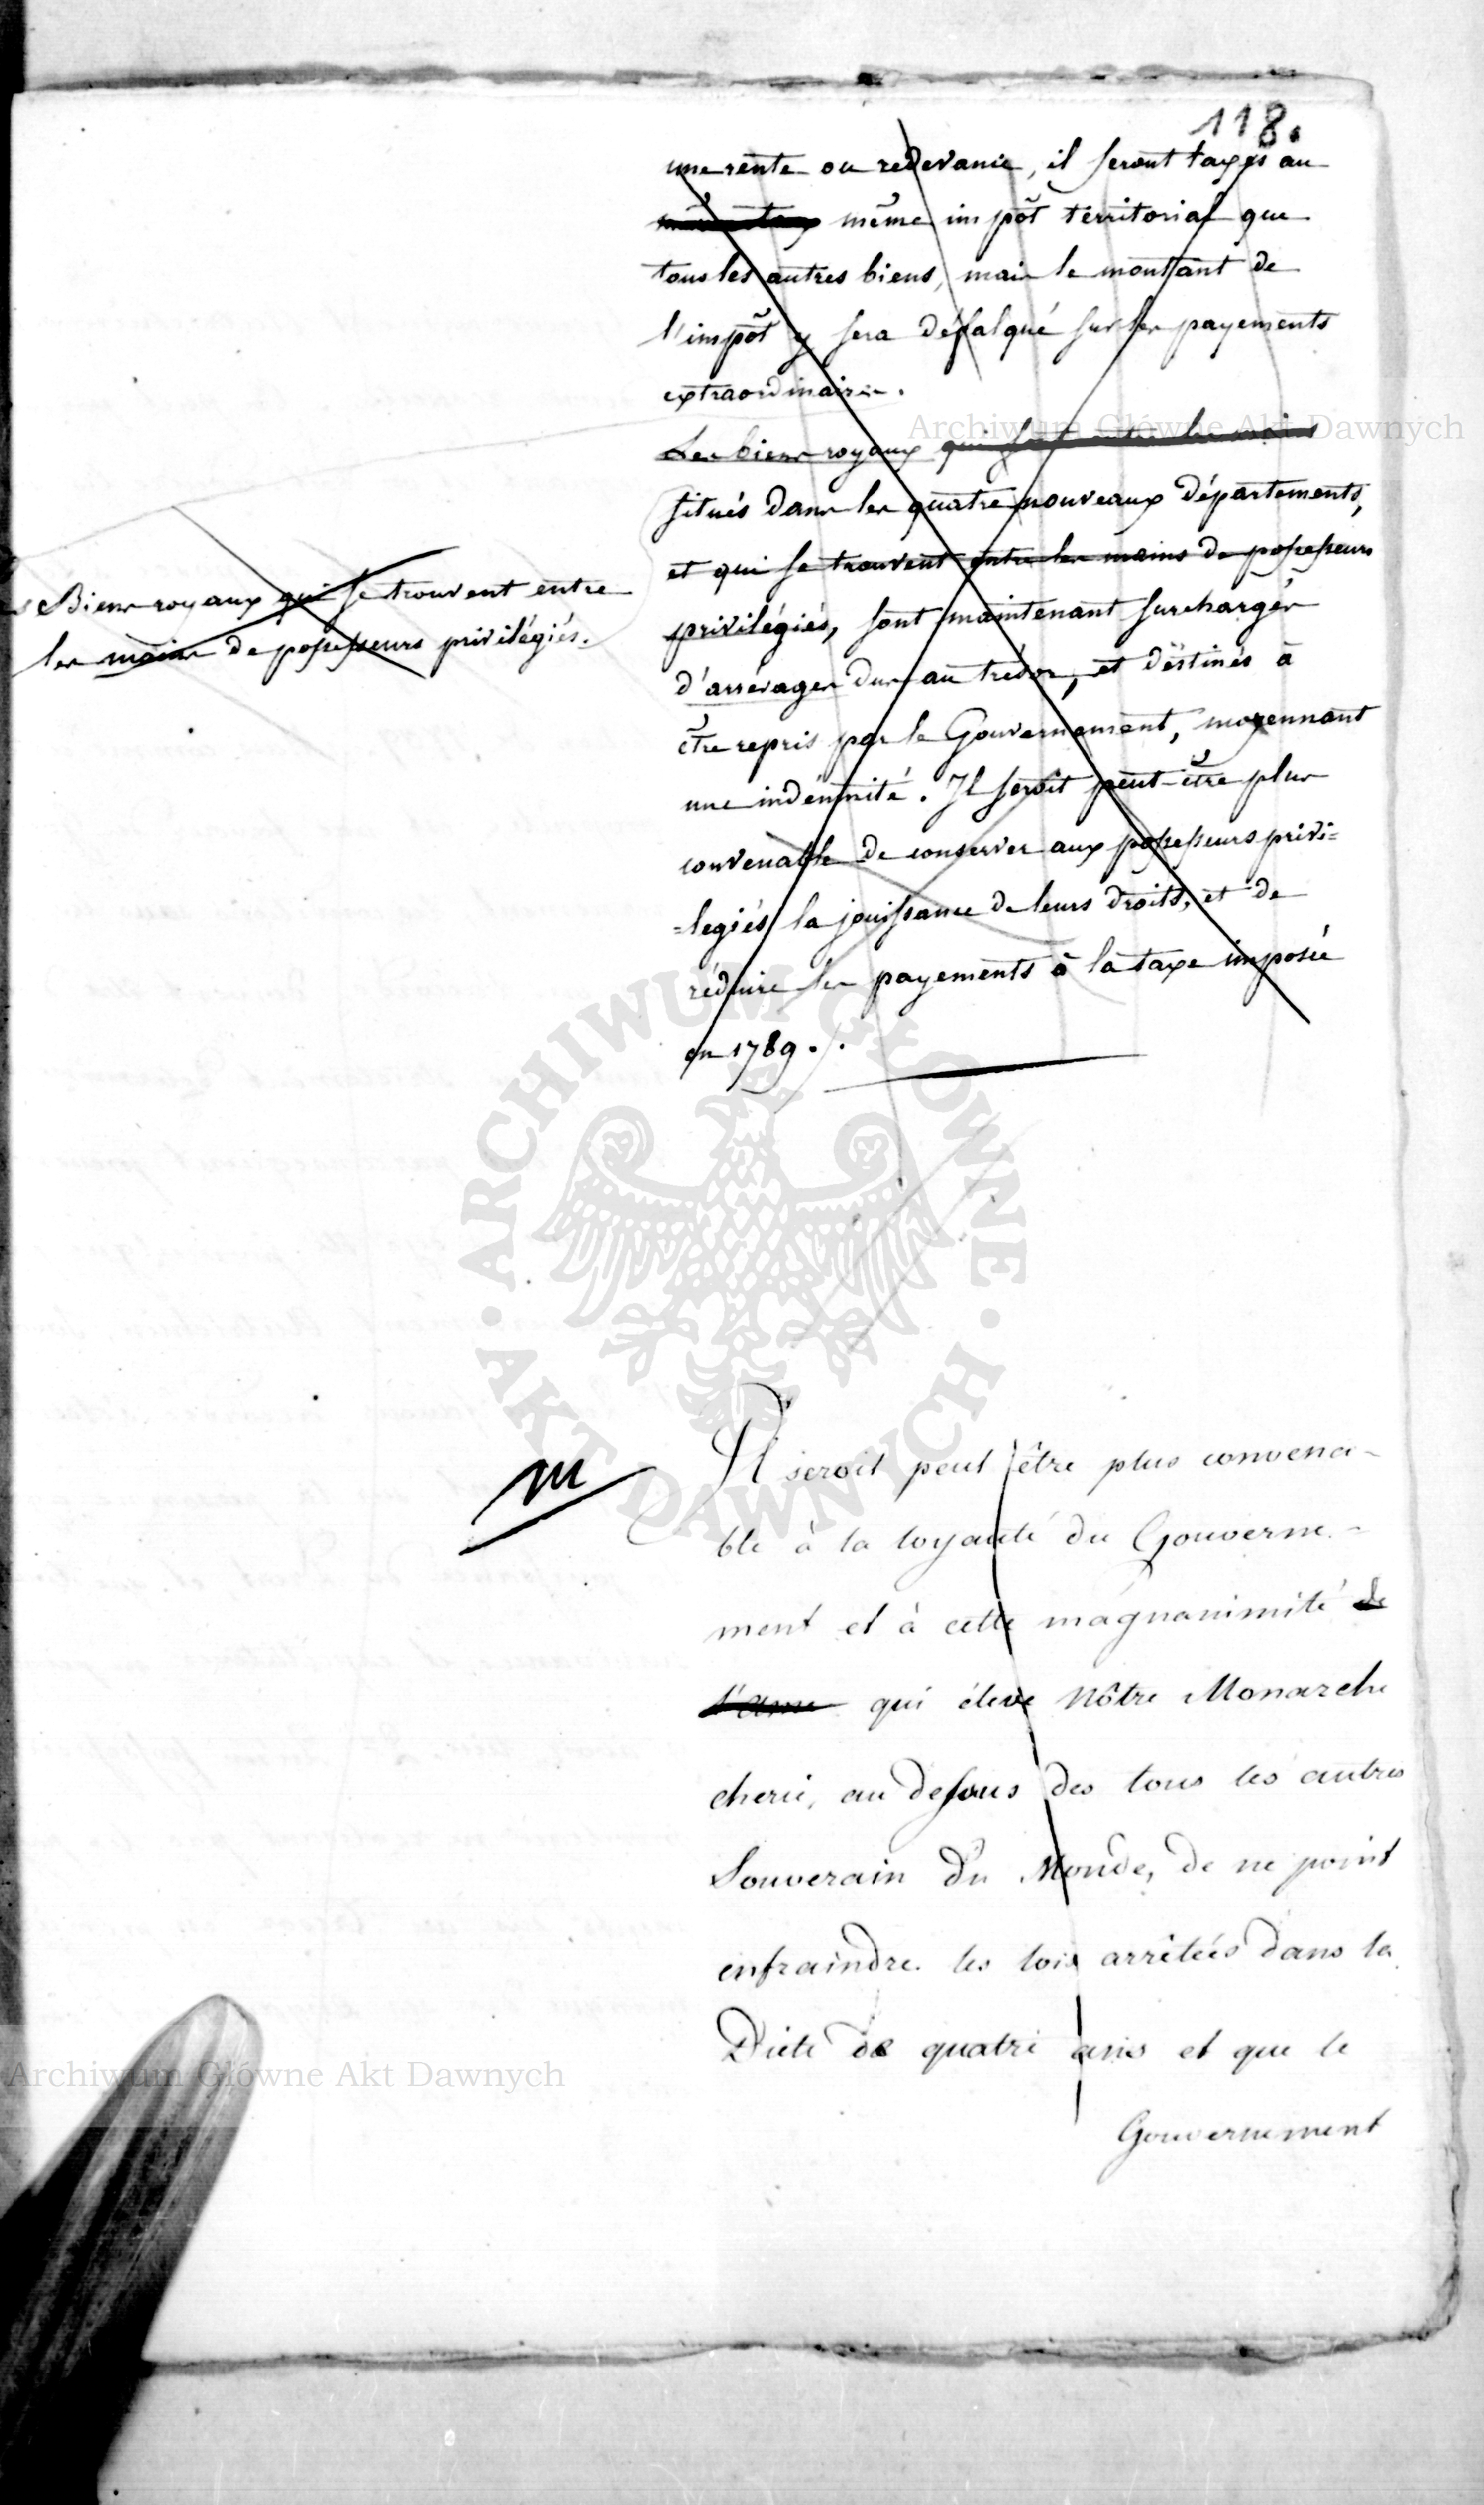 118.
une rente ou redevance, il seront taxés au
même impôt territorial que
tous les autres biens, mais le montant de
l'impôt y sera défalqué sur les payements
extraordinaires.
Les biens royaux qui sont entre les mains
situés dans les quatre nouveaux départements,
et qui se trouvent entre les mains de possesseurs
privilégiés, sont maintenant surchargés
d'arrérages dus au trésor, et destinés à
être repris par le Gouvernement, moyennant
une indemnité. Il seroit peut-être plus
convenable de conserver aux possesseurs privi=
=legiés la jouissance de leurs droits, et de
réduire les payements à la taxe imposée
en 1789.
Biens royaux qui se trouvent entre
les mains de possesseurs privilégiés.
m
Il seroit peut être plus convena-
ble à la loyauté du Gouverne-
ment et à cette magnanimité de
l'ame qui éleve Nôtre Monarche
cheri, au dessus des tous les autres
Souverain du Monde, de ne point
enfraindre les lois arrêtées dans la
Diete de quatre ans et que le
Gouvernement
Archiwum Główne Akt Dawnych
ARCHIWUM GŁÓWNE AKT DAWNYCH
Archiwum Główne Akt Dawnych